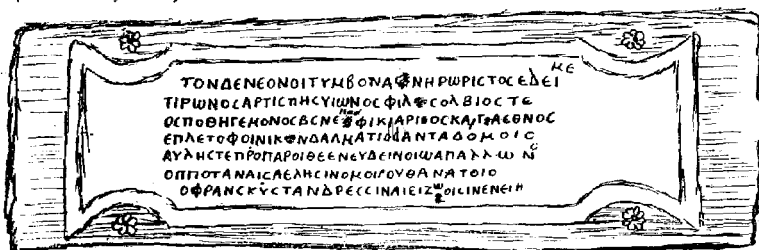 ΤΟΝΔΕΝΕΟΝΟΙΤΥΜΒΟΝΑΦΝΗΡΩΡΙϹΤΟϹΕΔΕΙΜΕ
ΤΙΡΩΝΟϹΑΡΤΙϹΠΗϹΥΙΩΝΟϹΦΙΛΟϹΟΛΒΙΟϹΤΕ
ΟϹΠΟΘΗΓΕΜΟΝΟϹΒϹΝΕΦΦΙΚΙΑΡΙΟϹΚΑΓΑΕΘΝΟϹ
ΕΠΛΕΤΟΦΟΙΝΙΚΩΝΔΑΛΜΑΤΙΟϹΑΝΤΑΔΟΜΟΙϹ
ΑΥΛΗϹΤΕΠΡΟΠΑΡΟΙΘΕΕΝΕΥΔΕΙΝΟΙΩΑΠΑΛΛΩΝ
ΟΠΠΟΤΑΝΑΙϹΑΕΛΗϹΙΝΟΜΟΙΡΟΥΘΑΝΑΤΟΙΟ
ΟΦΡΑΝϹΚΥϹΤΑΝΔΡΕϹϹΙΝΑΙΕΙΖΩΟΙϹΙΝΕΝΕΙΗ